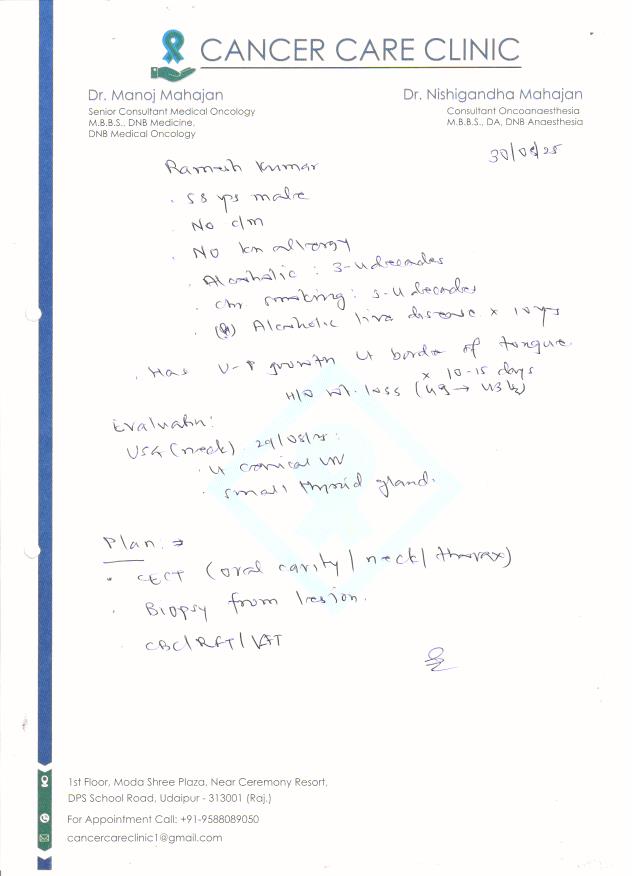 CANCER CARE CLINIC
Dr. Manoj Mahajan
Senior Consultant Medical Oncology
M.B.B.S., DNB Medicine,
DNB Medical Oncology
Dr. Nishigandha Mahajan
Consultant Oncoanaesthesia
M.B.B.S., DA, DNB Anaesthesia
30/08/25
Ramesh Kumar
. 58 yrs male
. No c/m
. No kn allergy
. Alcoholic : 3-4 decades
. Chr smoking : 3-4 decades
. Alcoholic liver disease x 10 yrs
. Has U-P growth Lt border of tongue
x 10-15 days
H/O wt. loss (49 → 43 kg)
Evaluatn:
USG (neck) 29/08/25:
. Lt cervical LN
. small thyroid gland.
Plan: ⇒
. CECT (oral cavity / neck / thorax)
. Biopsy from lesion.
. CBC/RFT/LFT
1st Floor, Moda Shree Plaza, Near Ceremony Resort,
DPS School Road, Udaipur - 313001 (Raj.)
For Appointment Call: +91-9588089050
cancercareclinic1@gmail.com